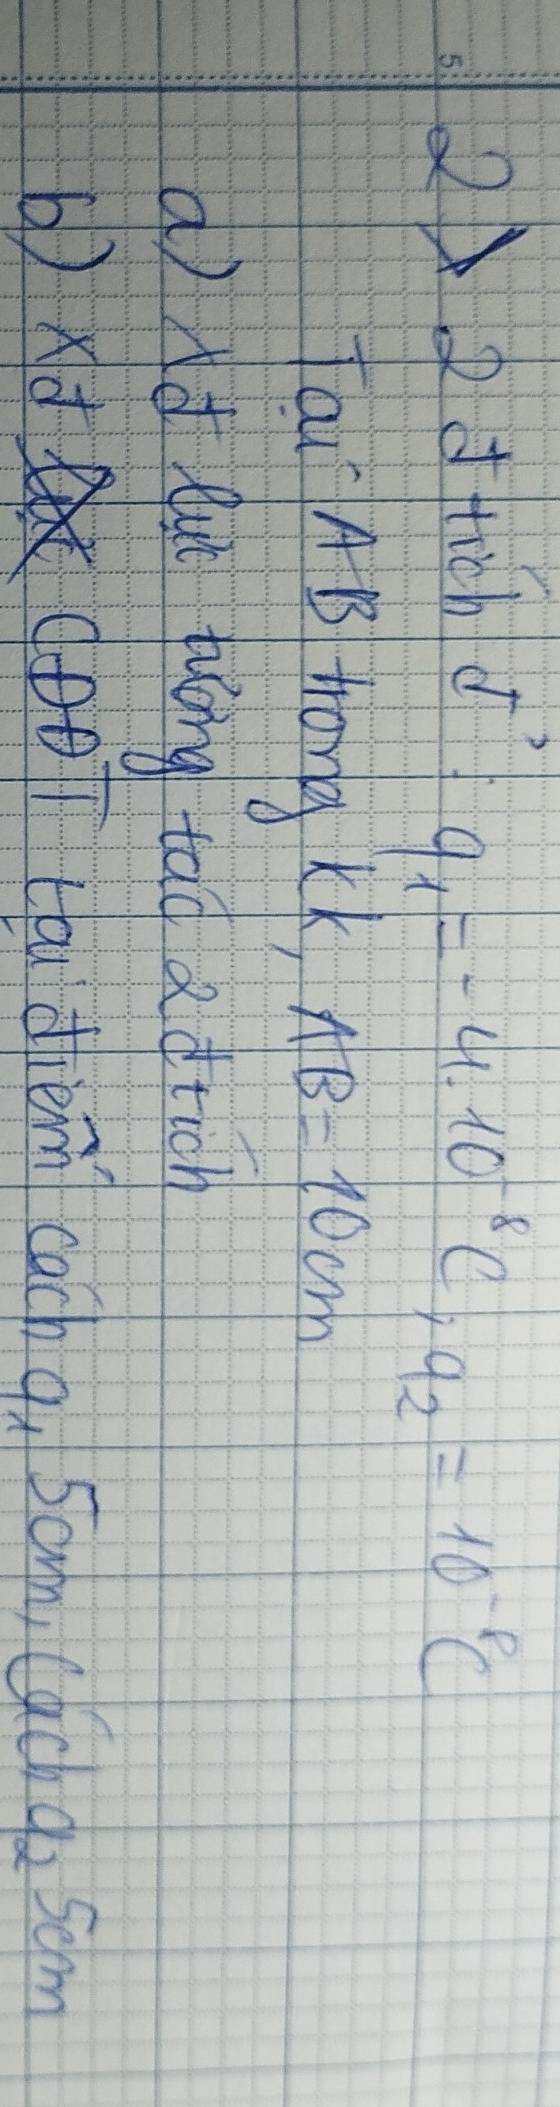 2) 2 đ tích đ': q₁ = - 4.10⁻⁸C, q₂ = 10⁻⁸C
Tại AB trong kk, AB = 10cm
a) xđ lực tương tác 2 đ tích
b) xđ CĐĐT tại điểm cách q₁ 5cm, Cách q₂ 5cm